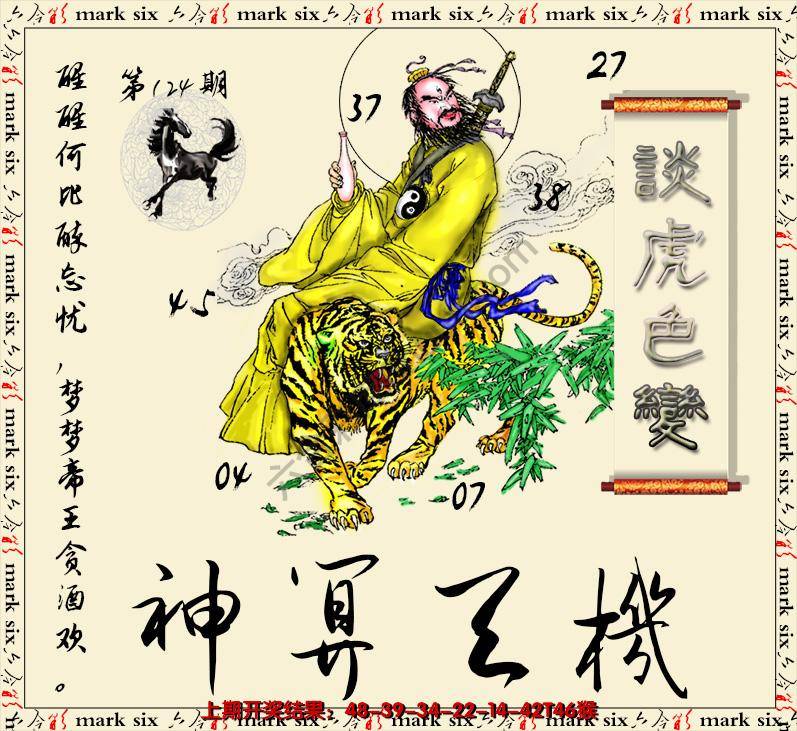 六合彩 mark six
第124期
醒醒何比醉忘忧，梦梦帝王贪酒欢。
37
27
38
45
04
07
談虎色變
神算天機
上期开奖结果：48-39-34-22-14-42T46猴